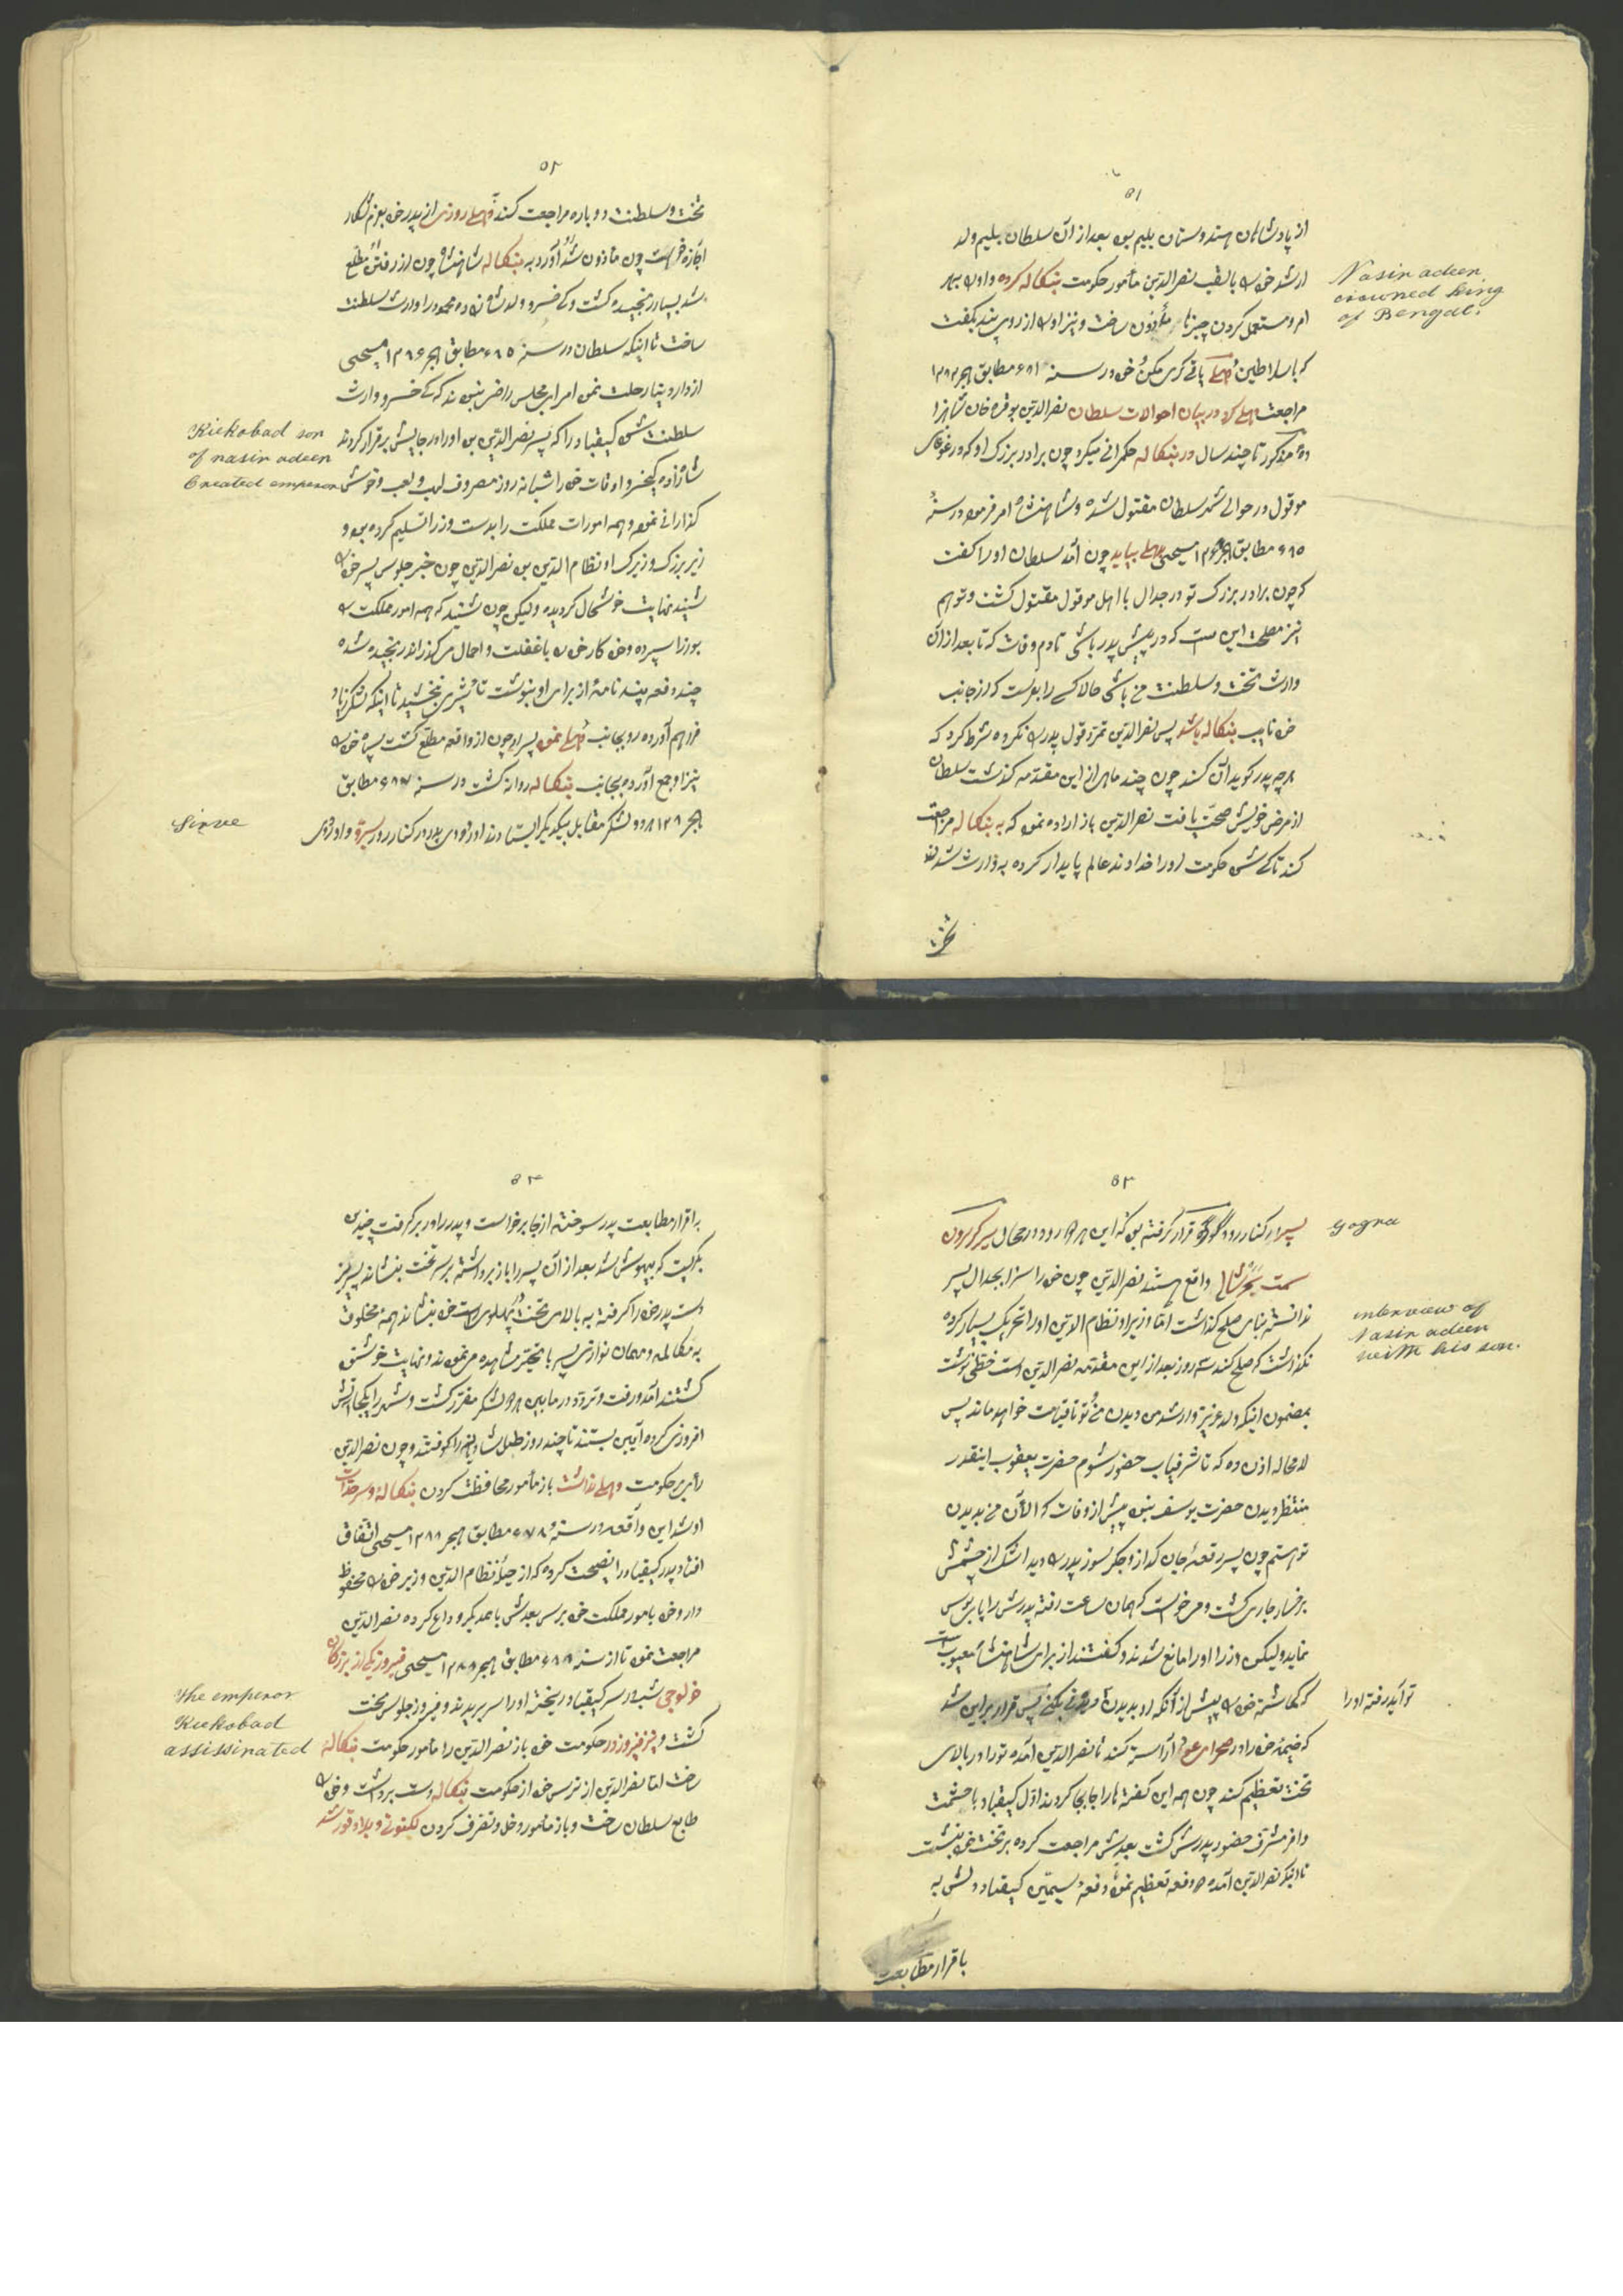 ٥١
از پادشاهان هندوستان بلیم بن بعد از آن سلطان بلیم ولد
ارشد خود را بالقب نصرالدین مأمور حکومت بنکاله کرده و اورا بهر
Nasir adeen
crowned king
of Bengal.
امر و مستعمل کردن چیزها مأذون ساخت و نیز اورا از روی پند بگفت
که با سلاطین دهلی یاقی کری مکن خود در سنه ٦٨١ مطابق ١٢٨٢
مراجعت بدهلی کرد در بیان احوالات سلطان نصرالدین بوقره خان شاهزاده
مذکور تا چند سال در بنکاله حکمرانی میکرد چون برادر بزرک او که در غوغای
موقول در حوالی شهر سلطان مقتول شده و شاهنشاه امر فرمود در سنهٔ
٦٨٥ مطابق مسیحی بدهلی بیاید چون آمد سلطان اورا کفت
که چون برادر بزرک تو در جدال با اهل موقول مقتول کشت و توهم
نیز مصلحت این است که در پیش پدر باشی تا دم وفات که تا بعد از آن
وارث تخت و سلطنت من باشی حالا کسی را بفرست که از جانب
خود نایب بنکاله باشد پس نصرالدین تمرد قول پدر را نکرده شرط کرد که
هر چه پدر کوید آن کند چون چند ماهی از این مقدمه کذشت سلطان
از مرض خویش صحت یافت نصرالدین باز اراده نمود که به بنکاله مراجعت
کند تا که حکومت اورا خداوند عالم پایدار کرده
تخت
٥٢
تخت و سلطنت دوباره مراجعت کند بدهلی روزی از پدر خود بعزم شکار
اجازه خواست چون مأذون شد آورد به بنکاله شاهنشاه چون از رفتن مطلع
شد بسیار رنجیده کشت و کی خسرو ولد شاهزاده محمد را وارث سلطنت
ساخت تا اینکه سلطان در سنه ٦٨٥ مطابق ١٢٨٦ مسیحی
از دار دنیا رحلت نمود امرای مجلس راضی نبودند که کی خسرو وارث
سلطنت شود کیقباد را که پسر نصرالدین بود اورا در جایش برقرار کردند
Kiekobad son
of nasir adeen
Created emperor
شاهزاده کیخسرو اوقات خود را شبانه روز مصروف لهب و لعب و خوش
کذرانی نمود و همه امورات مملکت را بدست وزرا تسلیم کرده بود و
زیر بزرک وزیرک او نظام الدین بود نصرالدین چون خبر جلوس پسر خود را
شنید نهایت خوشحال کردیده ولیکن چون شنید که همه امور مملکت را
بوزرا سپرده و خود کار خود را با غفلت و اهمال میکذراند رنجیده شده
چند دفعه پند نامهٔ از برای او بنوشت تأثیری نبخشید تا اینکه لشکر زیاد
فراهم آورده رو بجانب دهلی نمود پسر او چون از واقعه مطلع کشت سپاه خود را
نیز او جمع آورده بجانب بنکاله روانه کشت در سنه ٦٨٧ مطابق
١٢٨٨ دو لشکر مقابل بیکدیکر ایستادند اردوی پدر در کنار رود سرو و اردوی
Sirve
٥٣
پسر او کنار رود گوگره قرار کرفته بود که این هر دو رود در محال سرکروون
Gogra
سمت شمالی واقع هستند نصرالدین چون خود را سزا بجدال پسر
ندانسته بنای صلح کذاشت اما وزیر او نظام الدین اورا تحریک بسیار کرده
نکذاشت که صلح کند سه روز بعد از این مقدمه نصرالدین دست خطی نوشت
interview of
Nasir adeen
with his son.
بمضمون اینکه ولد عزیز وارشد من دیدن من و تو تا قیامت خواهد ماند پس
لامحاله اذن ده که تا شرفیاب حضور شوم حضرت یعقوب اینقدر
منتظر دیدن حضرت یوسف نبود پیش از وفات که الآن من بدیدن
تو هستم چون پسر رقعهٔ جان کداز و جکر سوز پدر را دید اشک از چشمش
بر خسار جاری کشت و میخواست که همان ساعت رفته پدرش را پای بوس
نماید ولیکن وزرا اورا مانع شدند و کفتند از برای شاهنشاه معیوب است
که کماشته خود را پیش از آنکه او بدیدن تو آید رفته اورا بکنی پس قرار بر این شد
که خیمه خود را در صحرای آراسته کند تا نصرالدین آمده تورا در بالای
تخت تعظیم کند چون همه این کفته ها را جابجا کردند اول کیقباد با حشمت
وافر مشرف حضور پدرش کشت بعدش مراجعت کرده بر تخت خود بنشست
تا اینکه نصرالدین آمده دو دفعه تعظیم نمود دفعه سیمین کیقباد دلش به
باقرار مطابعت
٥٤
براقرار مطابعت پدر سوخته از جا برخواست و پدر را در بر کرفت چندی
بکریست که بیهوش شد بعد از آن پسر را باز برداشته بر سر تخت بنشاند پسر نیز
دست پدر خود را کرفته به بالای تخت در پهلوی راست خود بنشاند همهٔ مخلوق
به مکالمه و مهمان نوازی پسر با تحیر مشاهده می نمودند و نهایت خوشنود
کشتند آمد و رفت و تردد در مابین هر دو لشکر مقرر کشت و شهر را یکجا آتش
افروزی کرده آیین بستند تا چند روز طبل شادیانه را کوفتند و چون نصرالدین
رأی بر حکومت دهلی نداشت باز مأمور محافظت کردن بنکاله و سرحدات
او شد این واقعه در سنه ٦٨٧ مطابق ١٢٨٨ مسیحی اتفاق
افتاد پدر کیقباد را نصیحت کرده که از حیلهٔ نظام الدین وزیر خود را محفوظ
دار و خود بامور مملکت خود برس بعدش با همدیکر وداع کرده نصرالدین
مراجعت نمود تا از سنه ٦٨٨ مطابق ١٢٨٨ مسیحی فیروز یکی از بزرکان
خولوجی شب در سر کیقباد ریخته اورا سر بریدند و فیروز جلوس تخت
The emperor
Kiekobad
assissinated
کشت و نیز فیروز در حکومت خود باز نصرالدین را مأمور حکومت بنکاله
ساخت اما نصرالدین از ترس خود از حکومت بنکاله دست برداشت و خود را
طابع سلطان ساخت و باز مأمور دخل و تصرف کردن لکنوتی و بلاد شد